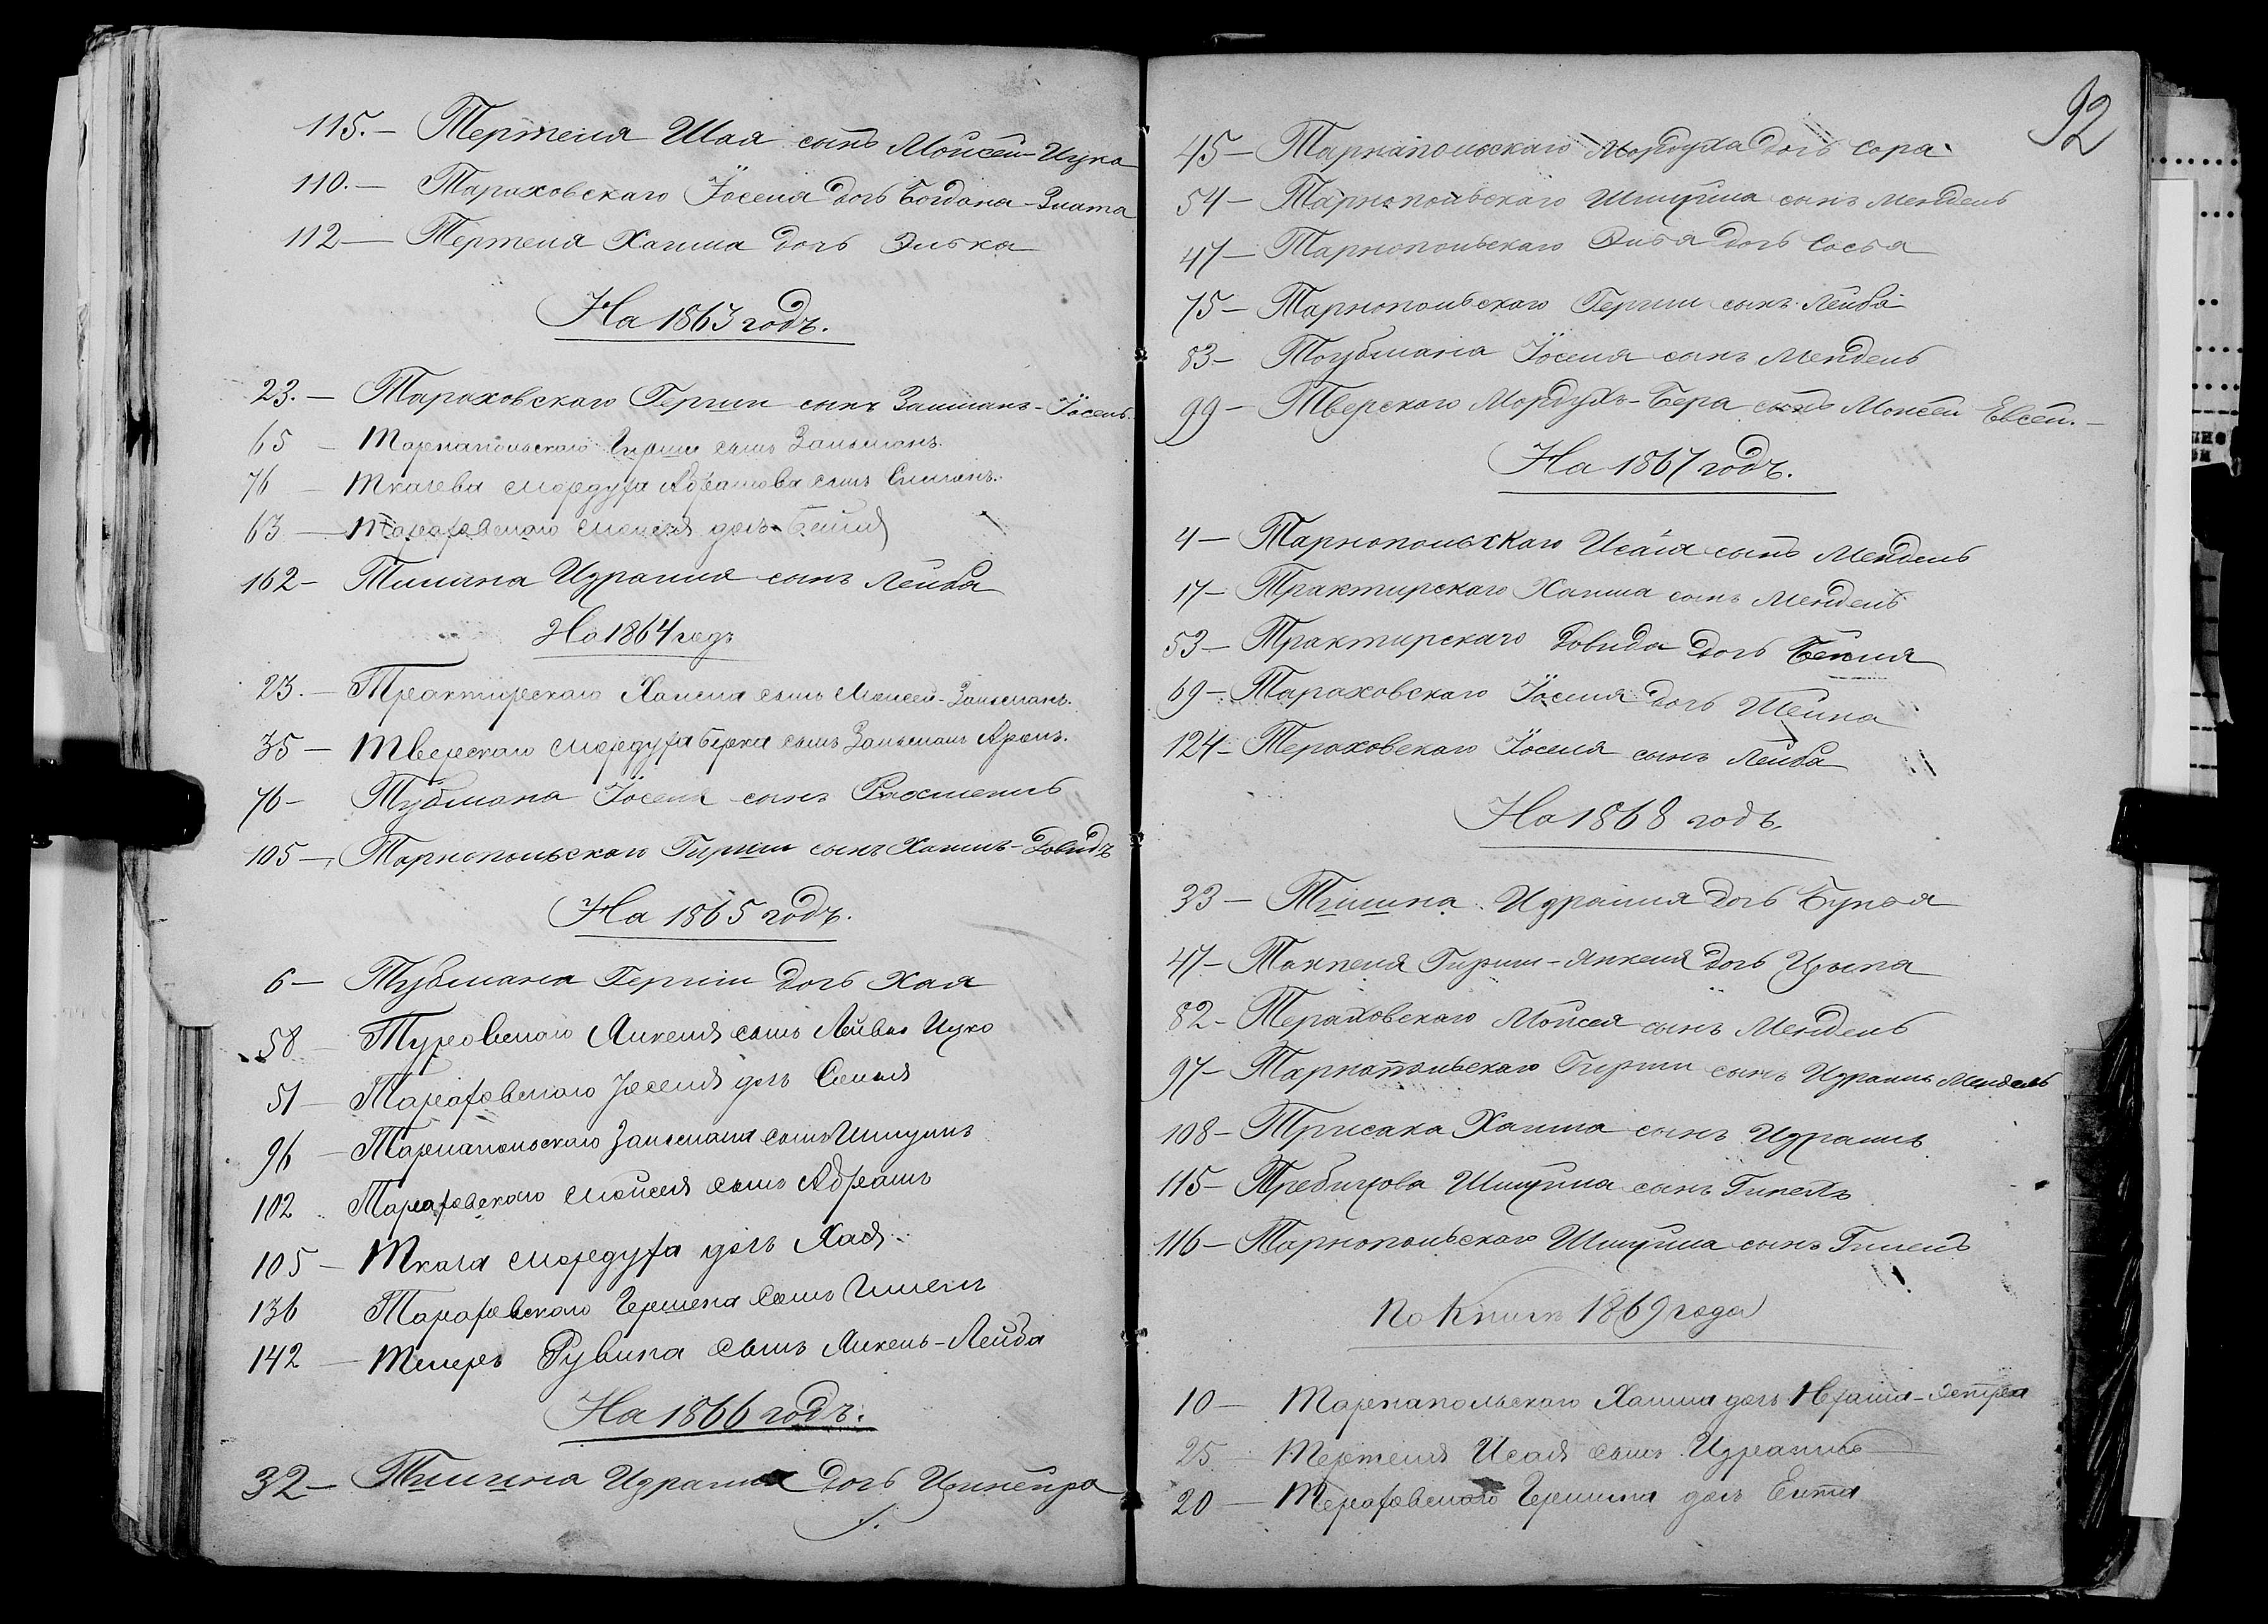 115. — Тертеля Шая сынъ Мойсей-Ицко
110. — Тараховскаго Іоселя дочь Богдана-Злата
112 — Тертеля Хаима дочь Элька
На 1863 годъ.
23. — Тараховскаго Герши сынъ Залманъ-Іосель.
65 — Тарнапольскаго Гирши сынъ Зальманъ.
76 — Ткачева Мордуха Абрамова сынъ Симонъ.
63 — Тараховскаго Моисея дочь Бейля
162 — Тишина Израиля сынъ Лейба
На 1864 годъ
23. — Трактирскаго Хаима сынъ Моисей-Зальманъ.
35 — Тверскаго Мордуха Берка сынъ Зальманъ Аронъ.
76 — Тубмана Іоселя сынъ Рахмель
105 — Тарнопольскаго Гирши сынъ Хаимъ-Довидъ
На 1865 годъ.
6 — Тубмана Герши дочь Хая
58 — Туровскаго Янкеля сынъ Лейба Ицко
51 — Тараховскаго Іоселя дочь
96 — Тарнапольскаго Зальмана сынъ Шмуль
102 Тараховскаго Мойсея сынъ Абрамъ
105 — Ткача Мордуха дочь Хая
136 Тараховскаго Гершена сынъ
142 — Рувина сынъ Янкель-Лейба
На 1866 годъ.
32 — Тишина Израиля дочь Ципейра
92
45 — Тарнапольскаго Мордуха дочь Сора
54 — Тарнопольскаго Шмуйла сынъ Мендель
47 — Тарнопольскаго Элья дочь Сосья
75 — Тарнопольскаго Герши сынъ Лейба
83 — Іоселя сынъ Мендель
99 — Тверскаго Мордухъ-Бера сынъ Моисей Евсей. —
На 1867 годъ.
4 — Тарнопольскаго Исаія сынъ Мендель
17 — Трактирскаго Хаима сынъ Мендель
53 — Трактирскаго Довида дочь Бейля
69 — Тараховскаго Іоселя дочь Шейна
124 — Тероховскаго Іоселя сынъ Лейба
На 1868 годъ.
33 — Тишина Израиля дочь Бунья
47 — Гирши-Янкеля дочь Цыпа
82 — Тераховскаго Мойсея сынъ Мендель
97 — Тарнопольскаго Гирши сынъ Израиль Мендель
108 — Трисака Хаима сынъ Израиль
115 — Требицова Шмуйла сынъ
116 — Тарнопольскаго Шмуйла сынъ
По книгѣ 1869 года
10 — Тарнапольскаго Хаима дочь
25 — Тертеля Исая сынъ Израиль
20 — Тераховскаго Гершина дочь Ента